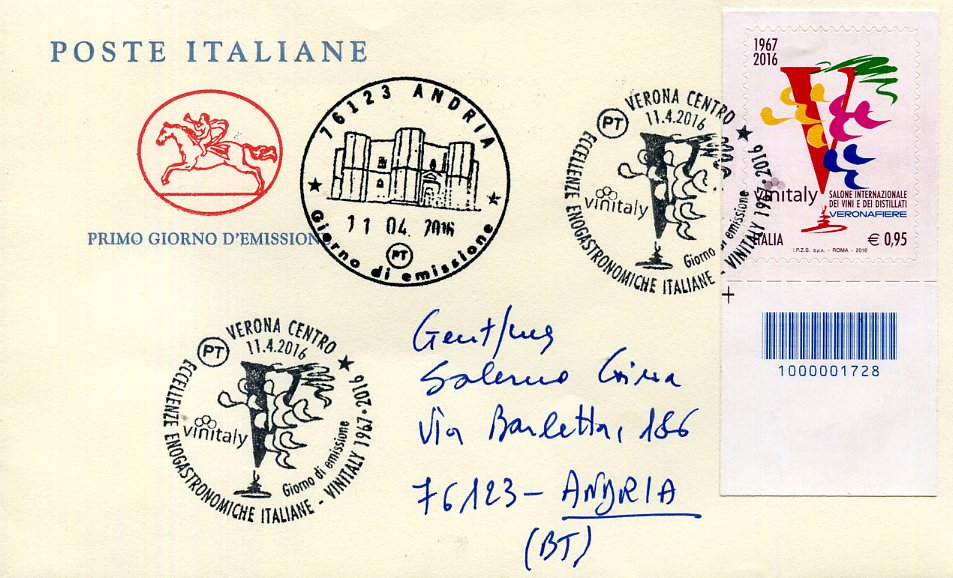 POSTE ITALIANE
PRIMO GIORNO D'EMISSION
76123 ANDRIA
11 04. 2016
PT
Giorno di emissione
VERONA CENTRO
PT 11.4.2016
ECCELLENZE ENOGASTRONOMICHE ITALIANE - VINITALY 1967•2016
vinitaly
Giorno di emissione
1967
2016
vinitaly
SALONE INTERNAZIONALE
DEI VINI E DEI DISTILLATI
VERONAFIERE
ITALIA
I.P.Z.S. S.p.A. - ROMA - 2016
€ 0,95
1000001728
VERONA CENTRO
PT 11.4.2016
ECCELLENZE ENOGASTRONOMICHE ITALIANE - VINITALY 1967•2016
vinitaly
Giorno di emissione
Salerno
Via Barletta, 186
76123 - ANDRIA
(BT)